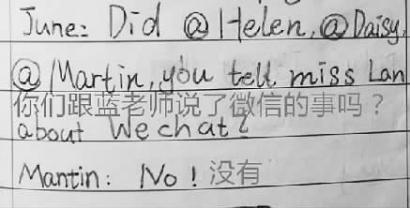 June: Did @Helen, @Daisy,
@Martin, you tell miss Lan
你们跟蓝老师说了微信的事吗？
about Wechat?
Mantin: No! 没有